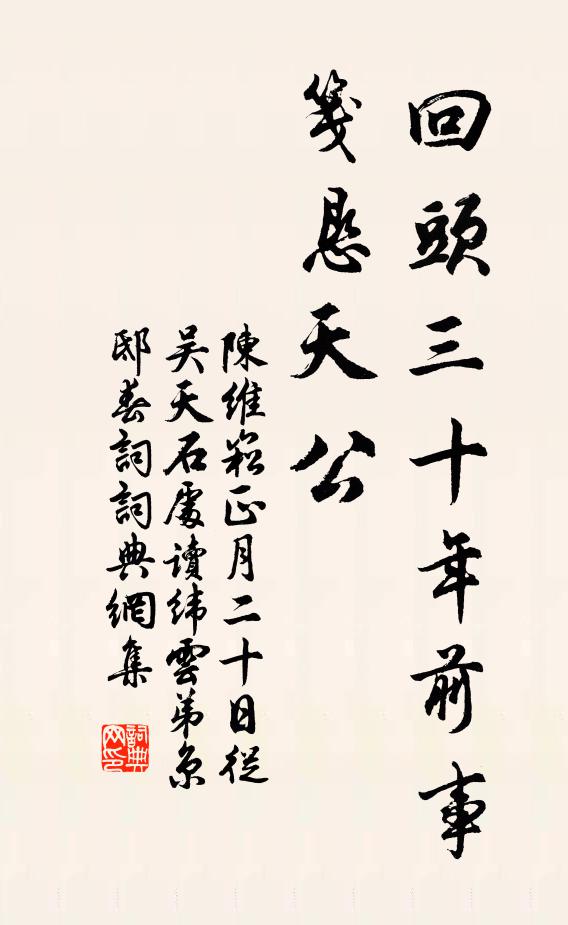 回頭三十年前事
箋恳天公
陳維崧正月二十日從
吴天石處讀緯雲弟京
邸春詞詞典網集
詞典网印